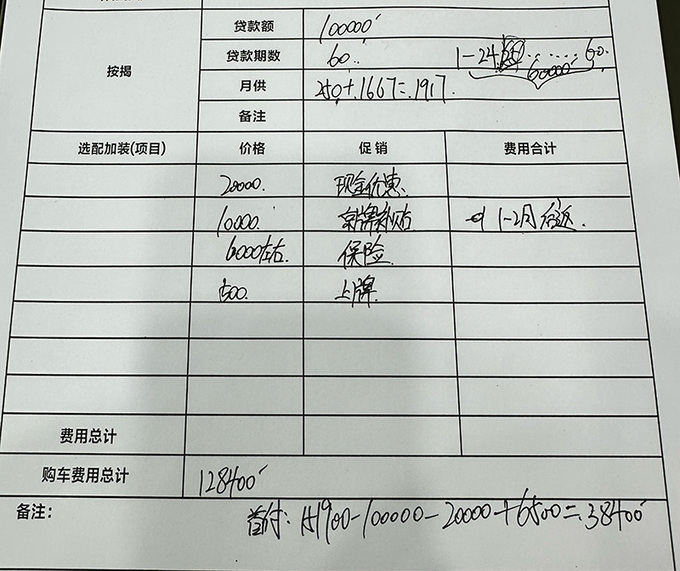 按揭
贷款额 100000
贷款期数 60. 1-24 25 ...... 60.
60000
月供 250+1667=1917.
备注
选配加装(项目) 价格 促销 费用合计
20000. 现金优惠.
10000. 京牌补贴 1-2月后返.
6000左右. 保险.
500. 上牌.
费用总计
购车费用总计 128400
备注: 首付: 151900-100000-20000+6500=38400